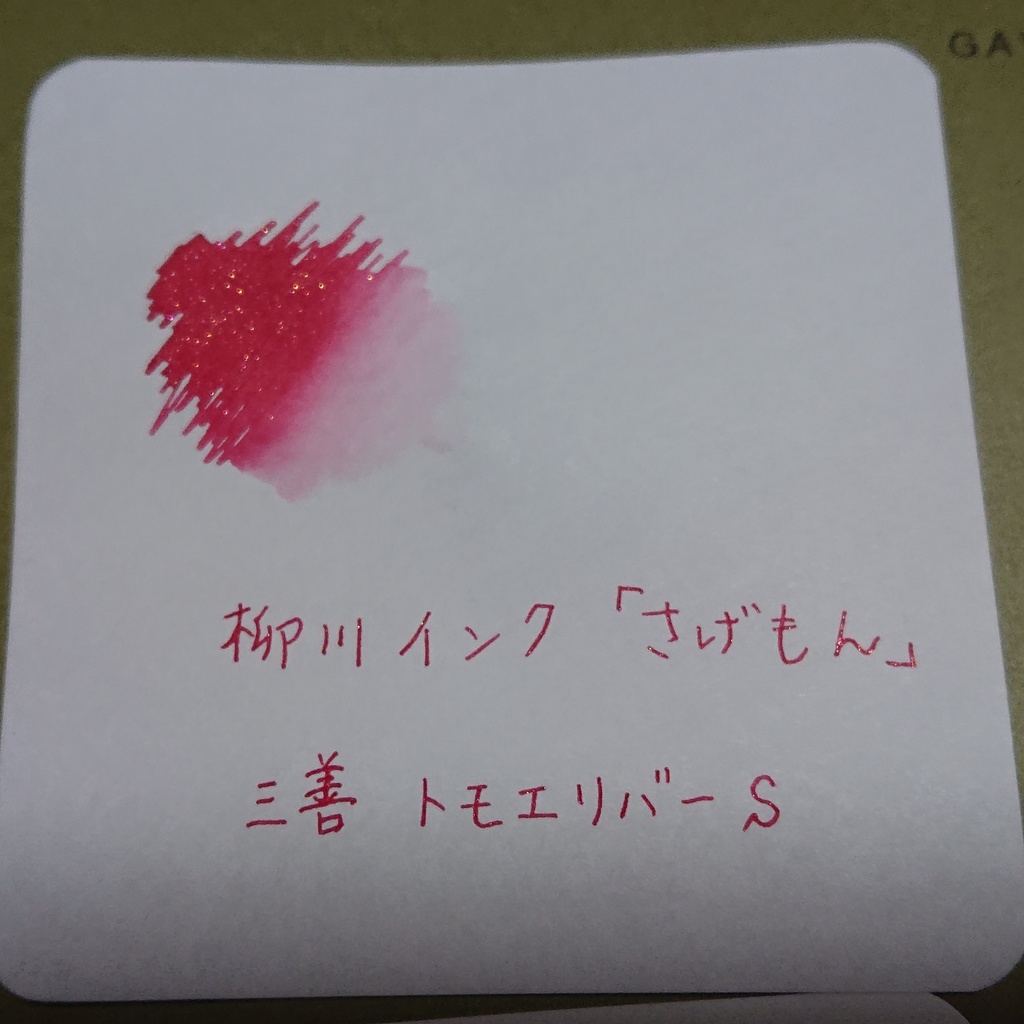 GA
柳川インク「さげもん」
三善 トモエリバーS